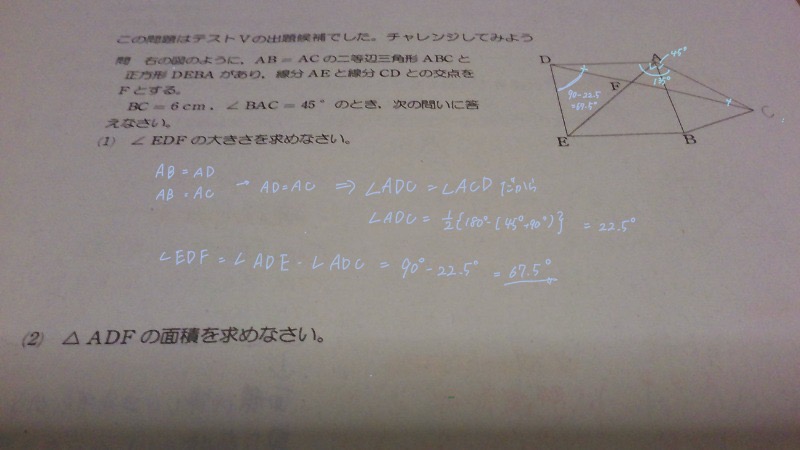 この問題はテストVの出題候補でした。チャレンジしてみよう
問 右の図のように，AB＝ACの二等辺三角形ABCと
正方形DEBAがあり，線分AEと線分CDとの交点を
Fとする。
BC＝6cm，∠BAC＝45°のとき，次の問いに答
えなさい。
(1) ∠EDFの大きさを求めなさい。
AB = AD
AB = AC → AD=AC ⇒ ∠ADC = ∠ACD だから
∠ADC = 1/2{180°-(45°+90°)} = 22.5°
∠EDF = ∠ADE - ∠ADC = 90°-22.5° = 67.5°
(2) △ADFの面積を求めなさい。
D
A
45°
135°
F
90-22.5
=67.5°
C
E
B